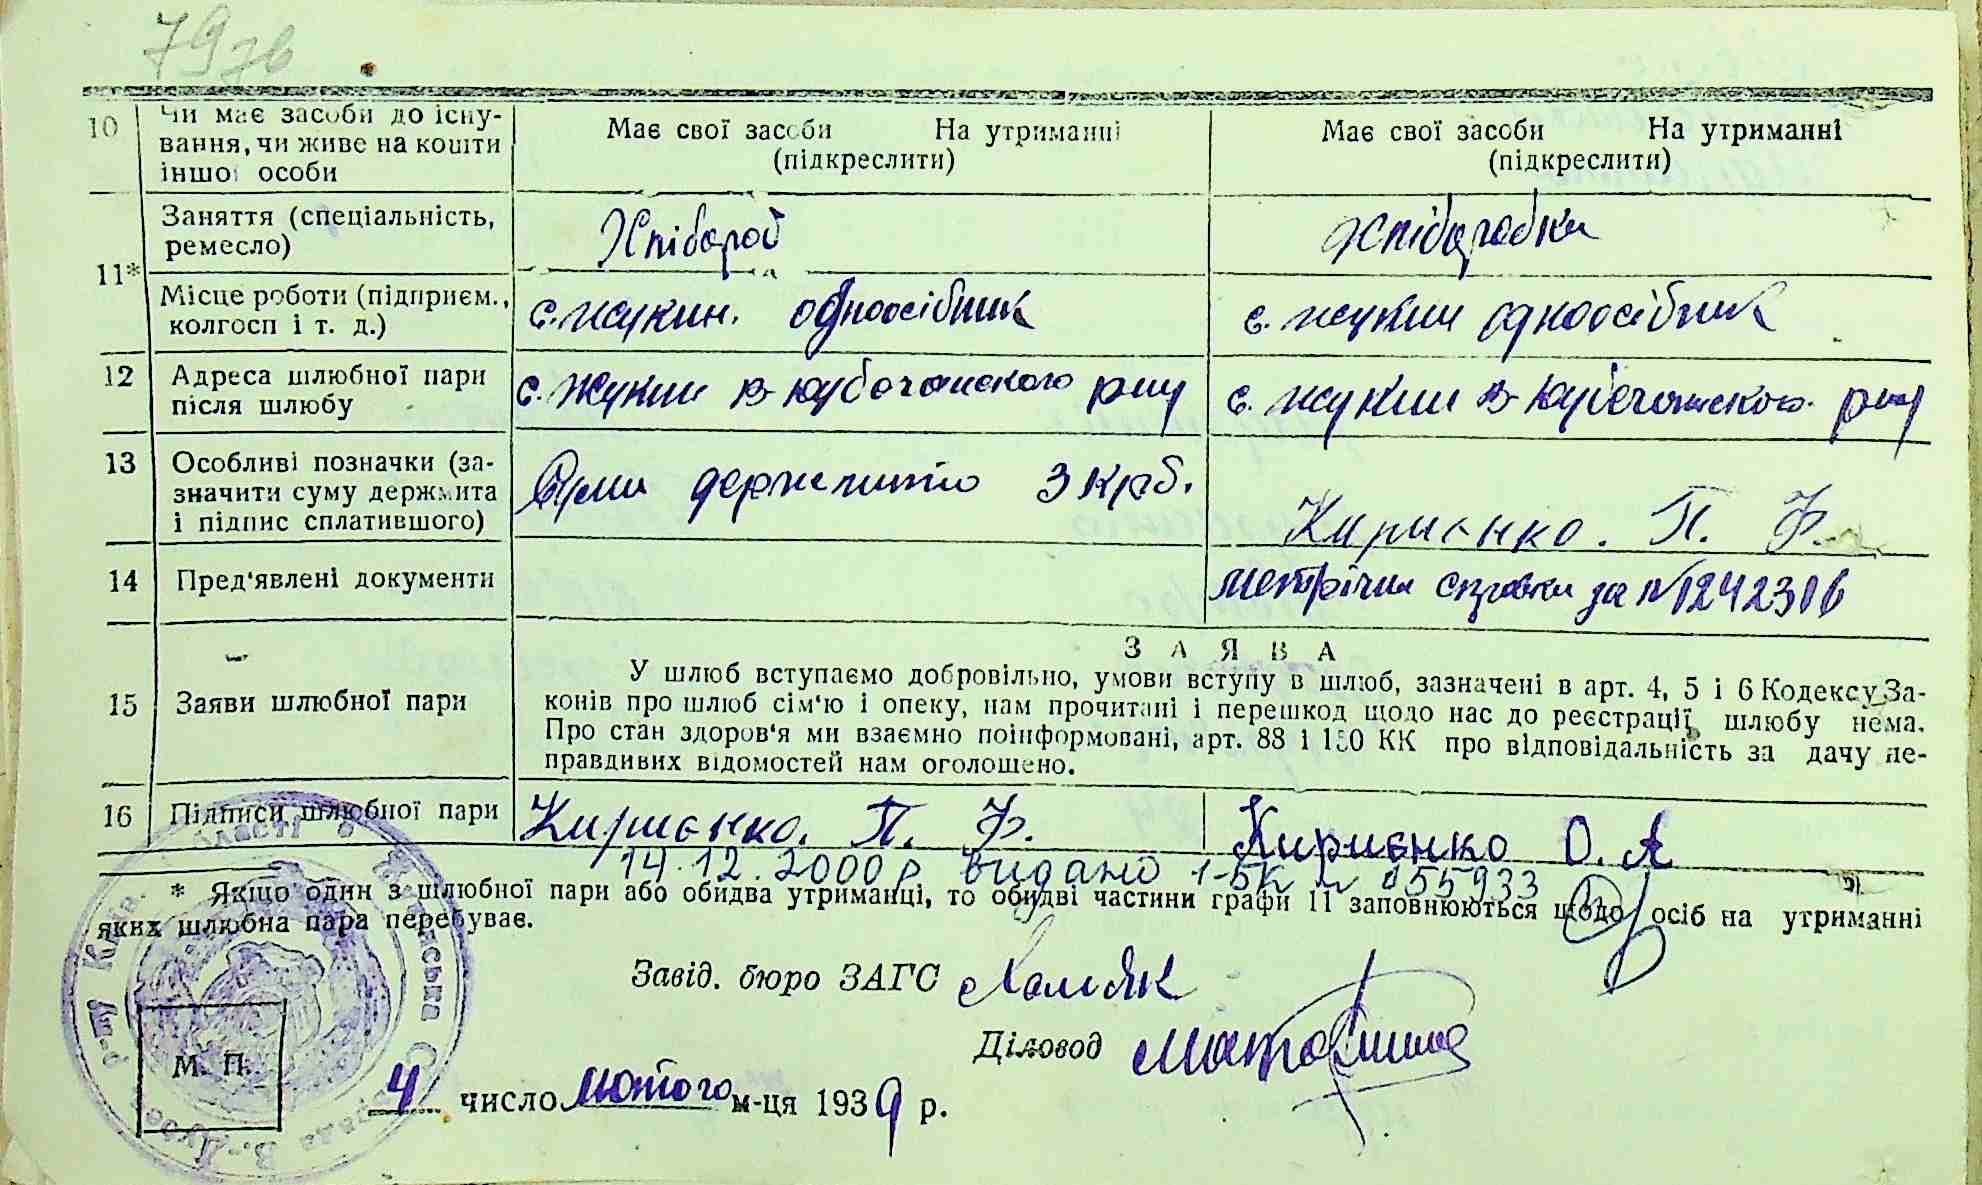 79зв
10 Чи має засоби до існування, чи живе на кошти іншої особи
Має свої засоби На утриманні
(підкреслити)
Має свої засоби На утриманні
(підкреслити)
11* Заняття (спеціальність,
ремесло)
Хлібороб
Хліборобка
Місце роботи (підприєм.,
колгосп і т. д.)
с. Жукин. одноосібник
с. Жукин одноосібник
12 Адреса шлюбної пари
після шлюбу
с. Жукин В-
с. Жукин В-
13 Особливі позначки (за-
значити суму держмита
і підпис сплатившого)
Сума держмито 3 крб.
Кириєнко. П. Ф.
14 Пред'явлені документи
метрічна справка за № 1242316
15 Заяви шлюбної пари
ЗАЯВА
У шлюб вступаємо добровільно, умови вступу в шлюб, зазначені в арт. 4, 5 і 6 Кодексу За-
конів про шлюб сім'ю і опеку, нам прочитані і перешкод щодо нас до реєстрації шлюбу нема.
Про стан здоров'я ми взаємно поінформовані, арт. 88 і 180 КК про відповідальність за дачу не-
правдивих відомостей нам оголошено.
16 Підписи шлюбної пари
Кириєнко. П. Ф.
Кириєнко О. А
14.12.2000 р видано 1-БК № 055933
* Якщо один з шлюбної пари або обидва утриманці, то обидві частини графи 11 заповнюються щодо осіб на утриманні
яких шлюбна пара перебуває.
Завід. бюро ЗАГС
Діловод
М. П.
4 число лютого м-ця 1939 р.